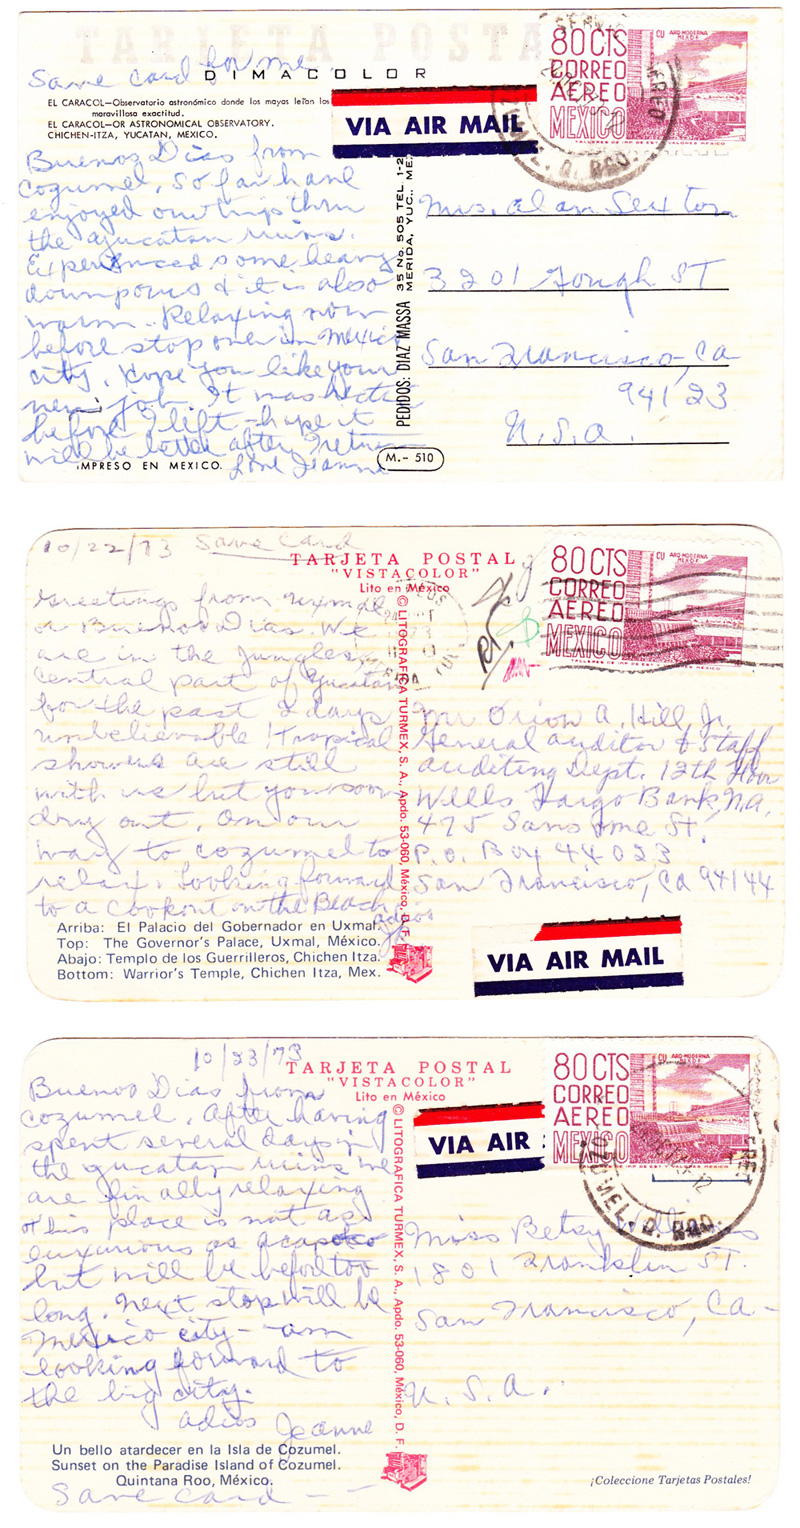 TARJETA POSTAL
Save card for me
DIMACOLOR
EL CARACOL—Observatorio astronómico donde los mayas leían los
maravillosa exactitud.
EL CARACOL—OR ASTRONOMICAL OBSERVATORY.
CHICHEN-ITZA, YUCATAN, MEXICO.
VIA AIR MAIL
80 CTS
CORREO
AEREO
MEXICO
CU ARQ MODERNA
MEXICO D.F.
Buenos Dias from
Cozumel. So far have
enjoyed our trip thru
the yucatan ruins.
Experienced some heavy
downpours & it is also
warm. Relaxing now
before stop over in Mexico
city. Hope you like your
new job. It was hectic
before I left - hope it
will be better after I return
Love Jeanne
IMPRESO EN MEXICO.
PEDIDOS: DIAZ MASSA
35 No. 505 TEL. 1-2
MERIDA, YUC., ME
M.- 510
Mrs. Alan Sexton
3201 Gough ST
San Francisco, Ca
94123
U.S.A.
10/22/73 Save Card
TARJETA POSTAL
"VISTACOLOR"
Lito en México
80 CTS
CORREO
AEREO
MEXICO
CU ARQ MODERNA
MEXICO D.F.
Greetings from Uxmal
or Buenos Dias. We
are in the jungles
central part of Yucatan
for the past 2 days
unbelievable! Tropical
showers are still
with us but you soon
dry out. On our
way to cozumel to
relax. Looking forward
to a cookout on the Beach
adios
© LITOGRAFICA TURMEX, S. A., Apdo. 53-060, México, D. F.
Mr Orion A. Hill, Jr.
General auditor & Staff
auditing Dept. 12th Floor
Wells Fargo Bank, N.A.
475 Sansome St.
P.O. Box 44023
San Francisco, CA 94144
Arriba: El Palacio del Gobernador en Uxmal.
Top: The Governor's Palace, Uxmal, México.
Abajo: Templo de los Guerrilleros, Chichen Itza.
Bottom: Warrior's Temple, Chichen Itza, Mex.
VIA AIR MAIL
10/23/73
TARJETA POSTAL
"VISTACOLOR"
Lito en México
VIA AIR
80 CTS
CORREO
AEREO
MEXICO
CU ARQ MODERNA
MEXICO D.F.
Buenos Dias from
Cozumel. After having
spent several days in
the yucatan ruins we
are finally relaxing
& this place is not as
luxurious as acapolco
but will be before too
long. Next stop will be
Mexico city - am
looking forward to
the big city.
adios Jeanne
© LITOGRAFICA TURMEX, S. A., Apdo. 53-060, México, D. F.
Miss Betsy
1801 Franklin ST.
San Francisco, CA-
U.S.A.
Un bello atardecer en la Isla de Cozumel.
Sunset on the Paradise Island of Cozumel.
Quintana Roo, México.
Save card - -
¡Coleccione Tarjetas Postales!